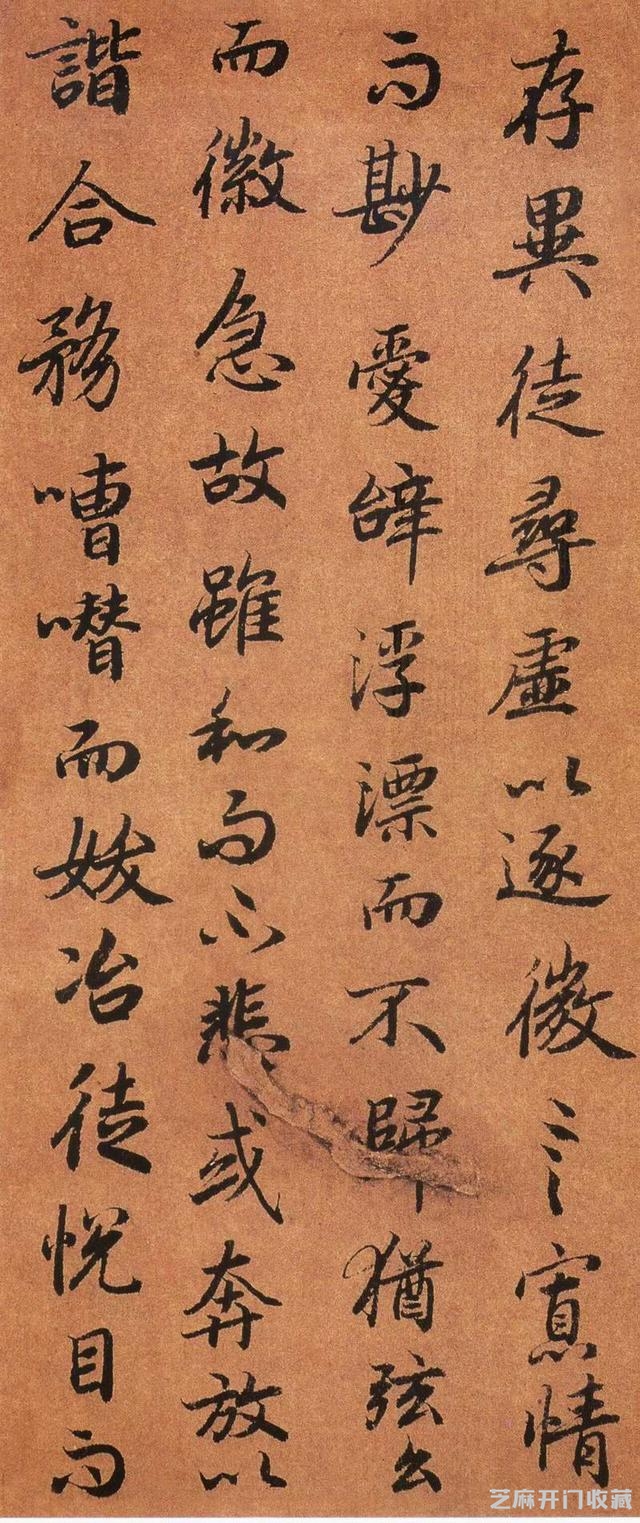 存異徒尋虛以逐微言寡情
而尠愛辭浮漂而不歸猶弦么
而徽急故雖和而不悲或奔放以
諧合務嘈囋而妖冶徒悅目而
芝麻开门收藏